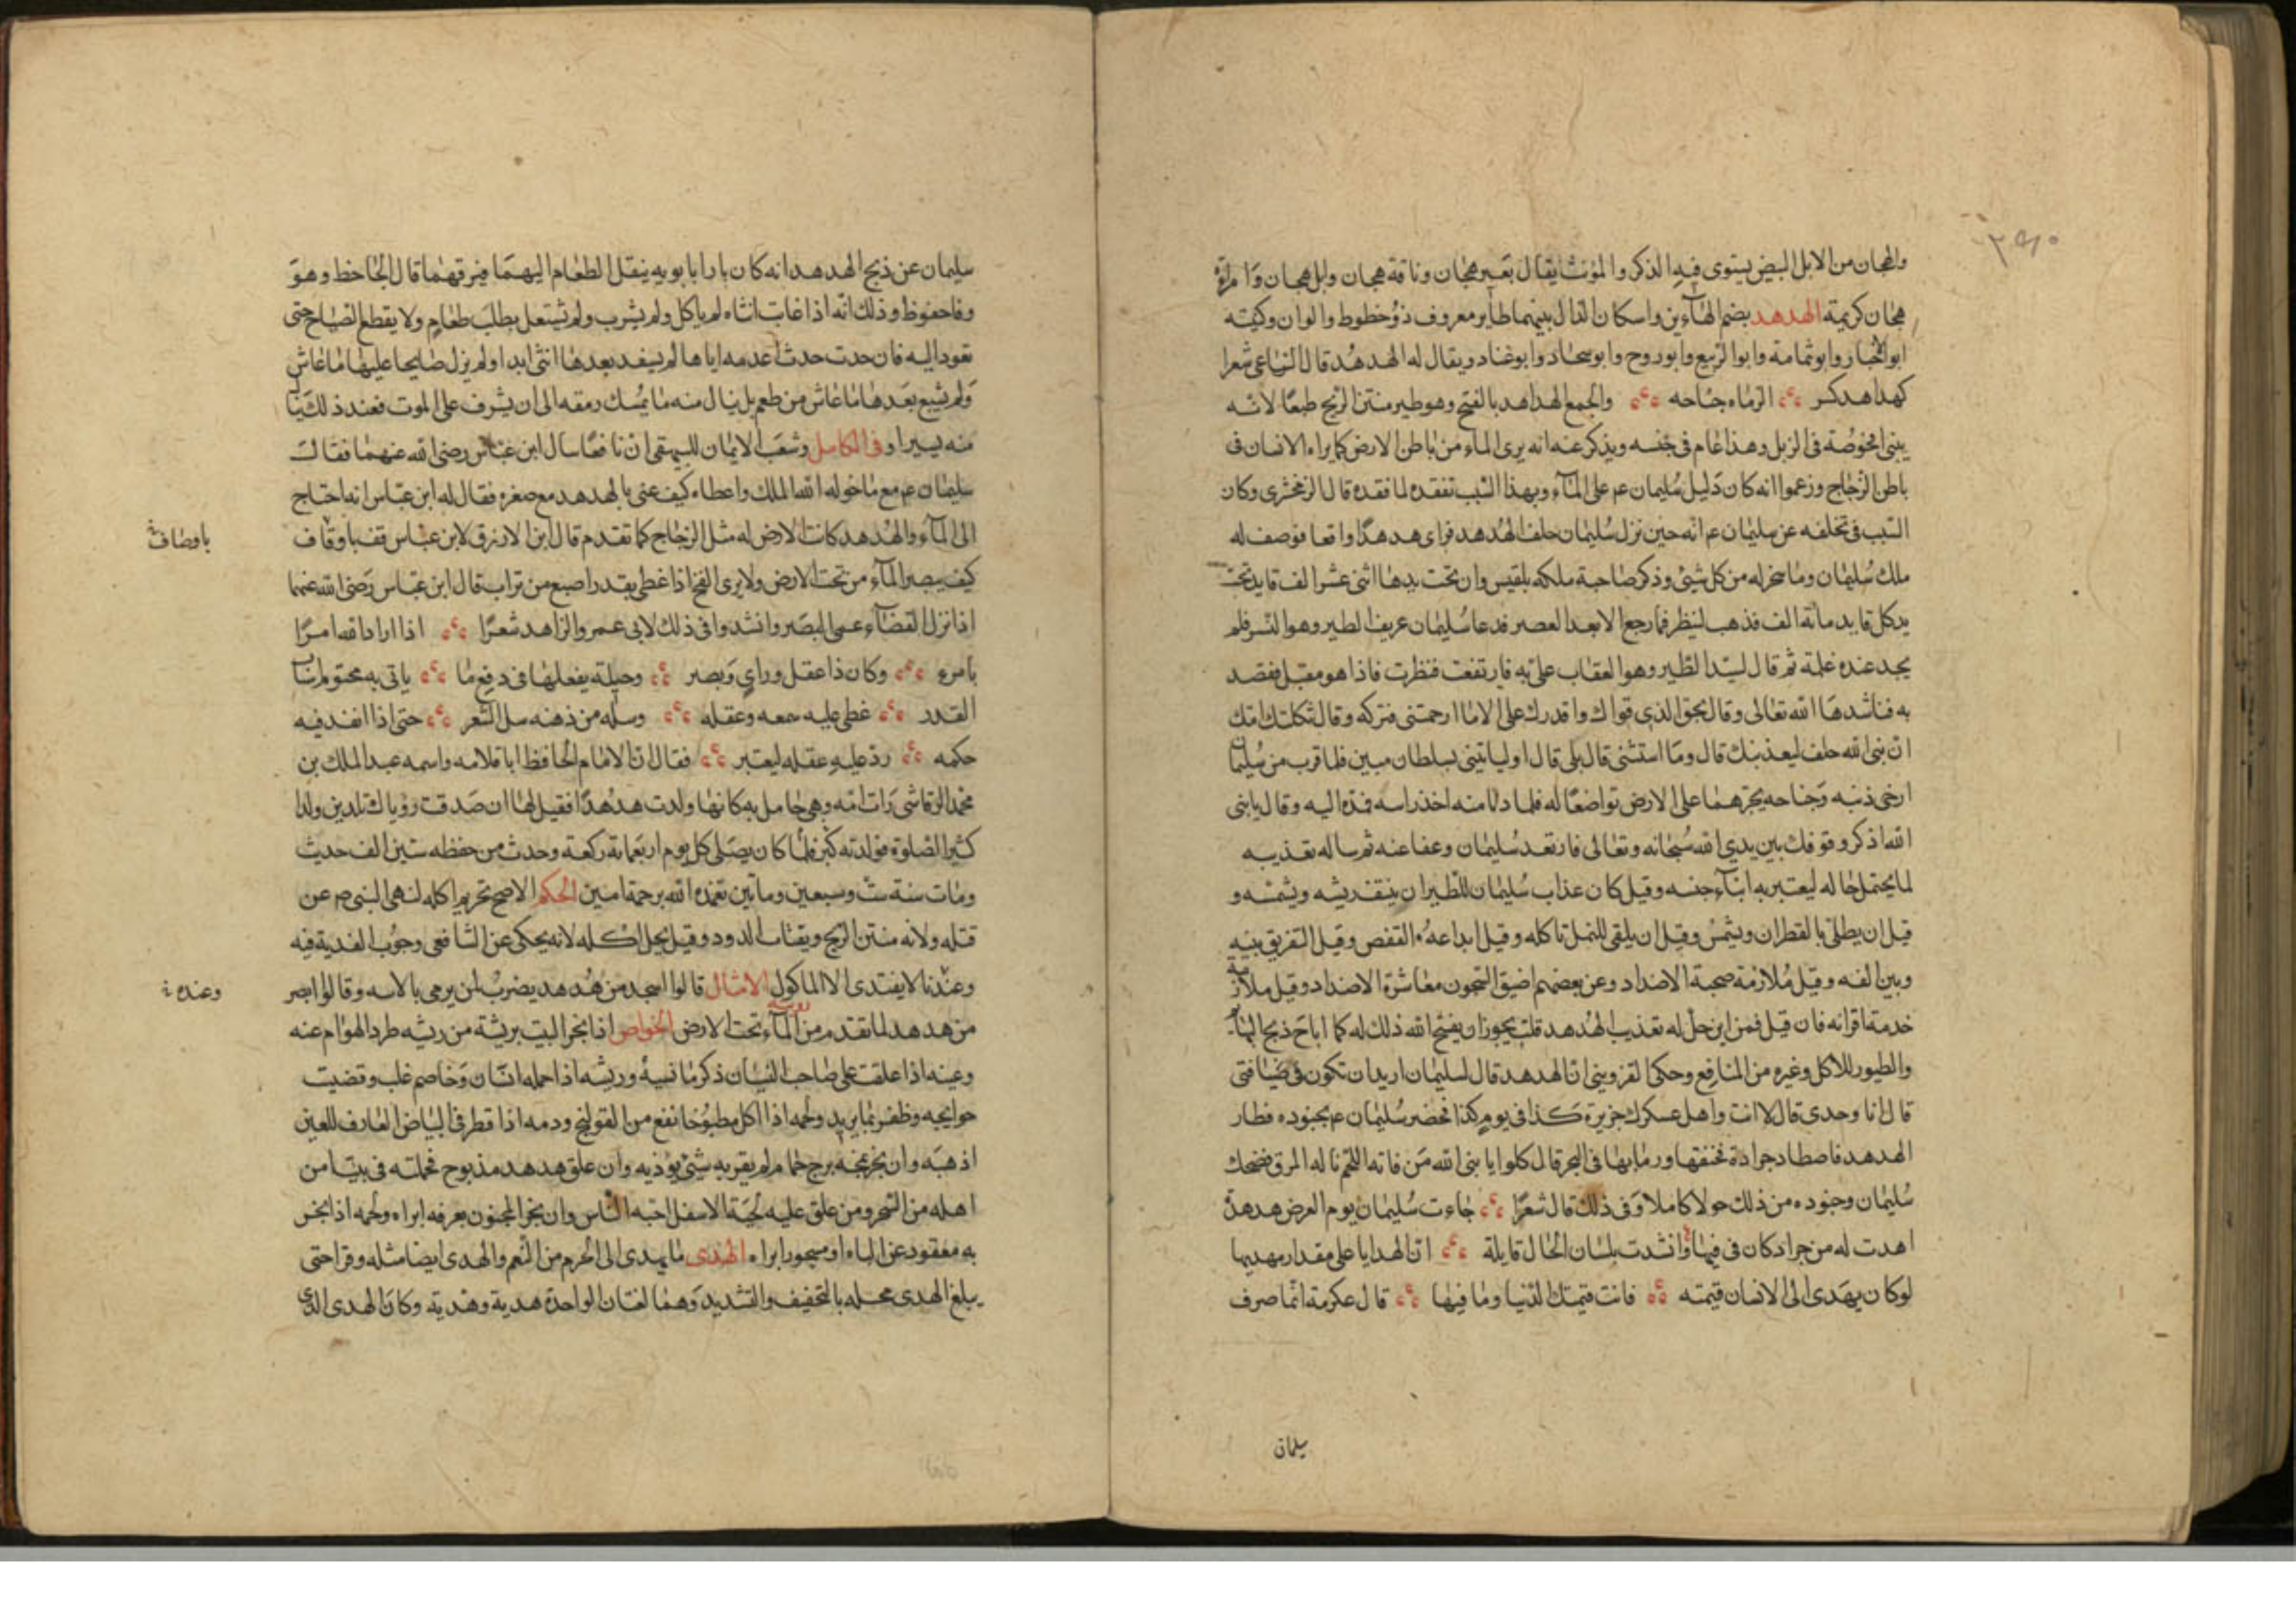 والهجان من الابل البيض يستوى فيه الذكر والمؤنث يقال بعير هجان وناقة هجان وابل هجان وامراة
هجان كريمة الهدهد بضم الهآءين واسكان الدال بينهما طاير معروف ذو خطوط والوان وكنيته
ابو الاخبار وابو ثمامة وابو الربيع وابو روح وابو سجاد وابو عباد ويقال له الهدهد قال الراعى شعرا
كهداهد كسر الرماه جناحه والجمع الهداهد بالفتح وهو طير منتن الريح طبعًا لانه
يبنى افحوصة فى الزبل وهذا عام فى جنسه ويذكر عنه انه يرى الماء من باطن الارض كما يراه الانسان فى
باطن الزجاج وزعموا انه كان دليل سليمان عم على المآء وبهذا السبب تفقده لما فقده قال الزمخشرى وكان
السبب فى تخلفه عن سليمان عم انه حين نزل سليمان حلف الهدهد فراى هدهدًا واقعا فوصف له
ملك سليمان وما سخر له من كل شئ وذكر صاحبة ملكه بلقيس وان تحت يدها اثنى عشر الف قايد تحت
يد كل قايد مائة الف فذهب لينظر فما رجع الا بعد العصر فدعا سليمان عريف الطير وهو النسر فلم
يجد عنده علمه ثم قال لسيد الطير وهو العقاب على به فارتفعت فنظرت فاذا هو مقبل فقصد
به فناشدها الله تعالى وقال بحق الذى قواك واقدرك على الا ما ارحمتنى فتركه وقال ثكلتك امك
ان نبى الله حلف ليعذبنك قال وما استثنى قال بلى قال او لياتينى بسلطان مبين فلما قرب من سليمان
ارخى ذنبه وجناحه يجرهما على الارض تواضعًا له فلما دنا منه اخذ راسه فمده اليه وقال يا نبى
الله اذكر وقوفك بين يدى الله سبحانه وتعالى فارتعد سليمان وعفا عنه ثم ساله تعذيبه
لما يحتمل حاله ليعتبر به ابنآء جنسه وقيل كان عذاب سليمان للطير ان ينتف ريشه ويشمسه و
قيل ان يطلى بالقطران ويشمس وقيل ان يلقى للنمل تاكله وقيل ايداعه القفص وقيل التفريق بينه
وبين الفه وقيل ملازمة صحبة الاضداد وعن بعضهم اضيق السجون معاشرة الاضداد وقيل ملازمة
خدمة اقرانه فان قيل فمن اين حل له تعذيب الهدهد قلت يجوز ان يفتح الله ذلك له كما اباح ذبح البهايم
والطيور للاكل وغيره من المنافع وحكى القزوينى ان الهدهد قال لسليمان اريد ان تكون فى ضيافتى
قال انا وحدى قال لا انت واهل عسكرك جزيرة كذا فى يوم كذا فحضر سليمان عم بجنوده فطار
الهدهد فاصطاد جرادة فخنقها ورما بها فى البحر قال كلوا يا نبى الله من فاته اللحم ناله المرق فضحك
سليمان وجنوده من ذلك حولا كاملا وفى ذلك قال شعرًا جاءت سليمان يوم العرض هدهدة
اهدت له من جراد كان فى فيها وانشدت بلسان الحال قايلة ان الهدايا على مقدار مهديها
لو كان يهدى الى الانسان قيمته فانت قيمتك الدنيا وما فيها قال عكرمة انما صرف
سليمان
سليمان عن ذبح الهدهد انه كان بارا بابويه ينقل الطعام اليهما فيزقهما قال الجاحظ وهو
وفا حفوظ وذلك انه اذا غابت انثاه لم ياكل ولم يشرب ولم يشتغل بطلب طعام ولا يقطع الصياح حتى
تعود اليه فان حدث حدث اعدمه اياها لم يسفد بعدها انثى ابدا ولم يزل صايحا عليها ما عاش
ولم يشبع بعدها ما عاش من طعم بل ينال منه ما يمسك رمقه الى ان يشرف على الموت فعند ذلك ينال
منه يسيرا وفى الكامل وشعب الايمان للبيهقى ان نافعًا سال ابن عباس رضى الله عنهما فقال
سليمان عم مع ما خوله الله الملك واعطاه كيف عنى بالهدهد مع صغره فقال له ابن عباس انه احتاج
الى المآء والهدهد كانت الارض له مثل الزجاج كما تقدم قال ابن الازرق لابن عباس قف باوقاف
باوصاف
كيف يبصر المآء من تحت الارض ولا يرى الفخ اذا غطى بقدر اصبع من تراب قال ابن عباس رضى الله عنهما
اذا نزل القضآء عمى البصر وانشدوا فى ذلك لابى عمرو الزاهد شعرًا اذا اراد الله امرًا
بامرء وكان ذا عقل وراى وبصر وحيلة يفعلها فى دفع ما ياتى به محتوم اسباب
القدر غطى عليه سمعه وعقله وسله من ذهنه سل الشعر حتى اذا انفذ فيه
حكمه رد عليه عقله ليعتبر فقال ان الامام الحافظ ابا قلابه واسمه عبد الملك بن
محمد الرقاشى رات امه وهى حامل به كانها ولدت هدهدًا فقيل لها ان صدقت رؤياك تلدين ولدا
كثير الصلوة فولدته كبر فلما كان يصلى كل يوم اربعماية ركعة وحدث من حفظه ستين الف حديث
ومات سنة ست وسبعين وماتين تغمده الله برحمة امين الحكم الاصح تحريم اكله لنهى النبى صم عن
قتله ولانه منتن الريح ويقتات الدود وقيل يحل اكله لانه يحكى عن الشافعى وجوب الفدية فيه
وعندنا لا يفتدى الا الماكول الامثال قالوا اسجد من هدهد يضرب لمن يرمى بالابنه وقالوا ابصر
وعنده
من هدهد لما تقدم من المآء تحت الارض الخواص اذا بخر البيت بريشة من ريشه طرد الهوام عنه
وعينه اذا علقت على صاحب النسيان ذكر ما نسيه وريشه اذا حمله انسان وخاصم غلب وقضيت
حوايجه وظفر بما يريد ولحمه اذا اكل مطبوخا نفع من القولنج ودمه اذا قطر فى البياض العارف للعين
اذهبه وان بخر بمخه برج حمام لم يقربه شئ يوذيه وان علق هدهد مذبوح بجملته فى بيت امن
اهله من السحر ومن علق عليه لحية الاسفل احبه الناس وان بخر المجنون بعرفه ابراه ولحمه اذا بخر
به معقود عن الباه او مسحور ابراه الهدى ما يهدى الى الحرم من النعم والهدى ايضا مثله وقرا حتى
يبلغ الهدى محله بالتخفيف والتشديد وهما لغتان الواحدة هدية وهدية وكان الهدى الذى